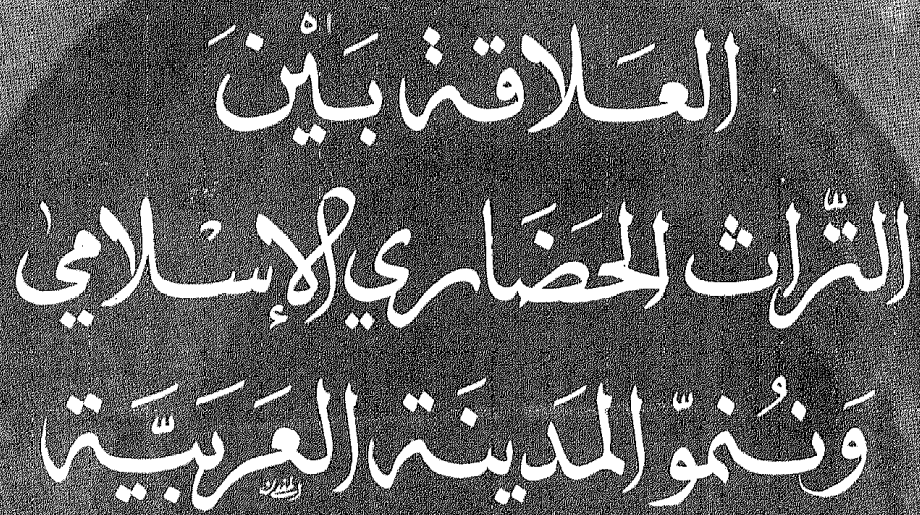 العَلاقة بَيْنَ
التّراث الحَضَاري الإسْلامي
وَنُموّ المَدينَة العَرَبيَّة